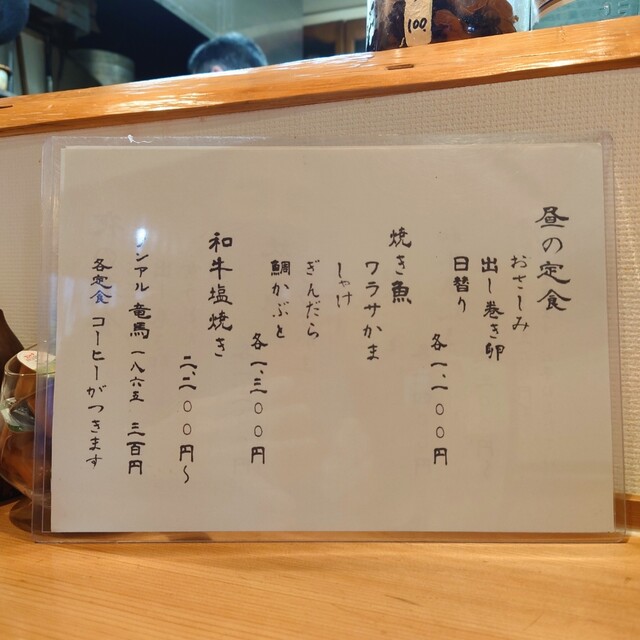 昼の定食
おさしみ
出し巻き卵
日替り
各一、一〇〇円
焼き魚
ワラサかま
しゃけ
ぎんだら
鯛かぶと
各一、三〇〇円
和牛塩焼き
二、二〇〇円〜
ンアル 竜馬 一八六五 三百円
各定食 コーヒーがつきます
100